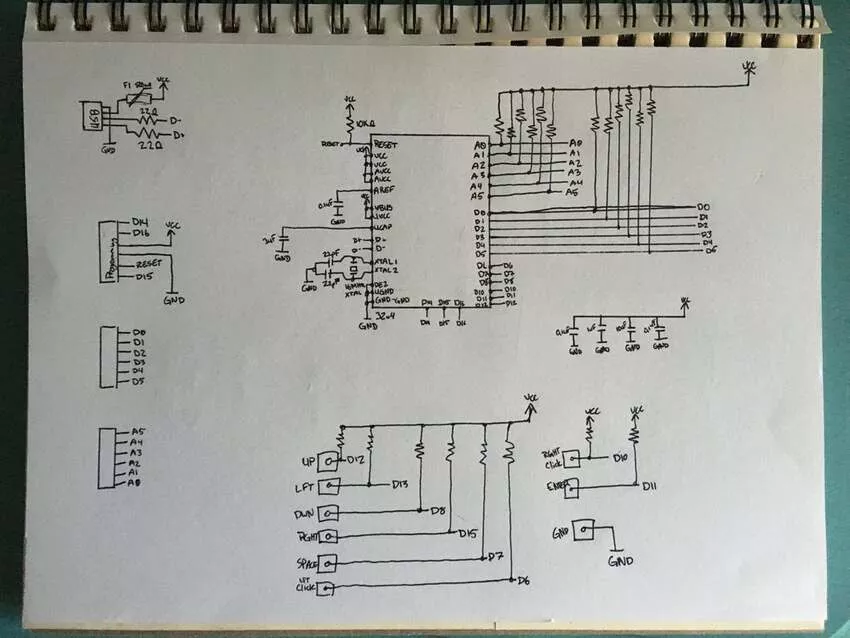 VCC
F1 500mA
VCC
USB
22Ω
D-
D+
22Ω
GND
VCC
10KΩ
RESET
RESET
VCC
VCC
AVCC
AVCC
AREF
0.1uF
GND
VBUS
UVCC
UCAP
1uF
GND
D+
D+
D-
D-
22pF
XTAL1
XTAL2
22pF
GND
16MHz
XTAL
UGND
GND-GND
GND
32u4
A0
A0
A1
A1
A2
A2
A3
A3
A4
A4
A5
A5
D0
D0
D1
D1
D2
D2
D3
D3
D4
D4
D5
D6
D6
D7
D7
D8
D8
D10
D10
D11
D11
D12
D12
D14
D15
D16
D14
D15
D16
D14
D16
VCC
Programming
RESET
D15
GND
D0
D1
D2
D3
D4
D5
A5
A4
A3
A2
A1
A0
VCC
0.1uF
1uF
10uF
0.1uF
GND
GND
GND
GND
VCC
UP
D12
LFT
D13
DWN
D8
RGHT
D15
SPACE
D7
LFT
CLICK
D6
VCC
VCC
RGHT
CLICK
D10
ENTER
D11
GND
GND